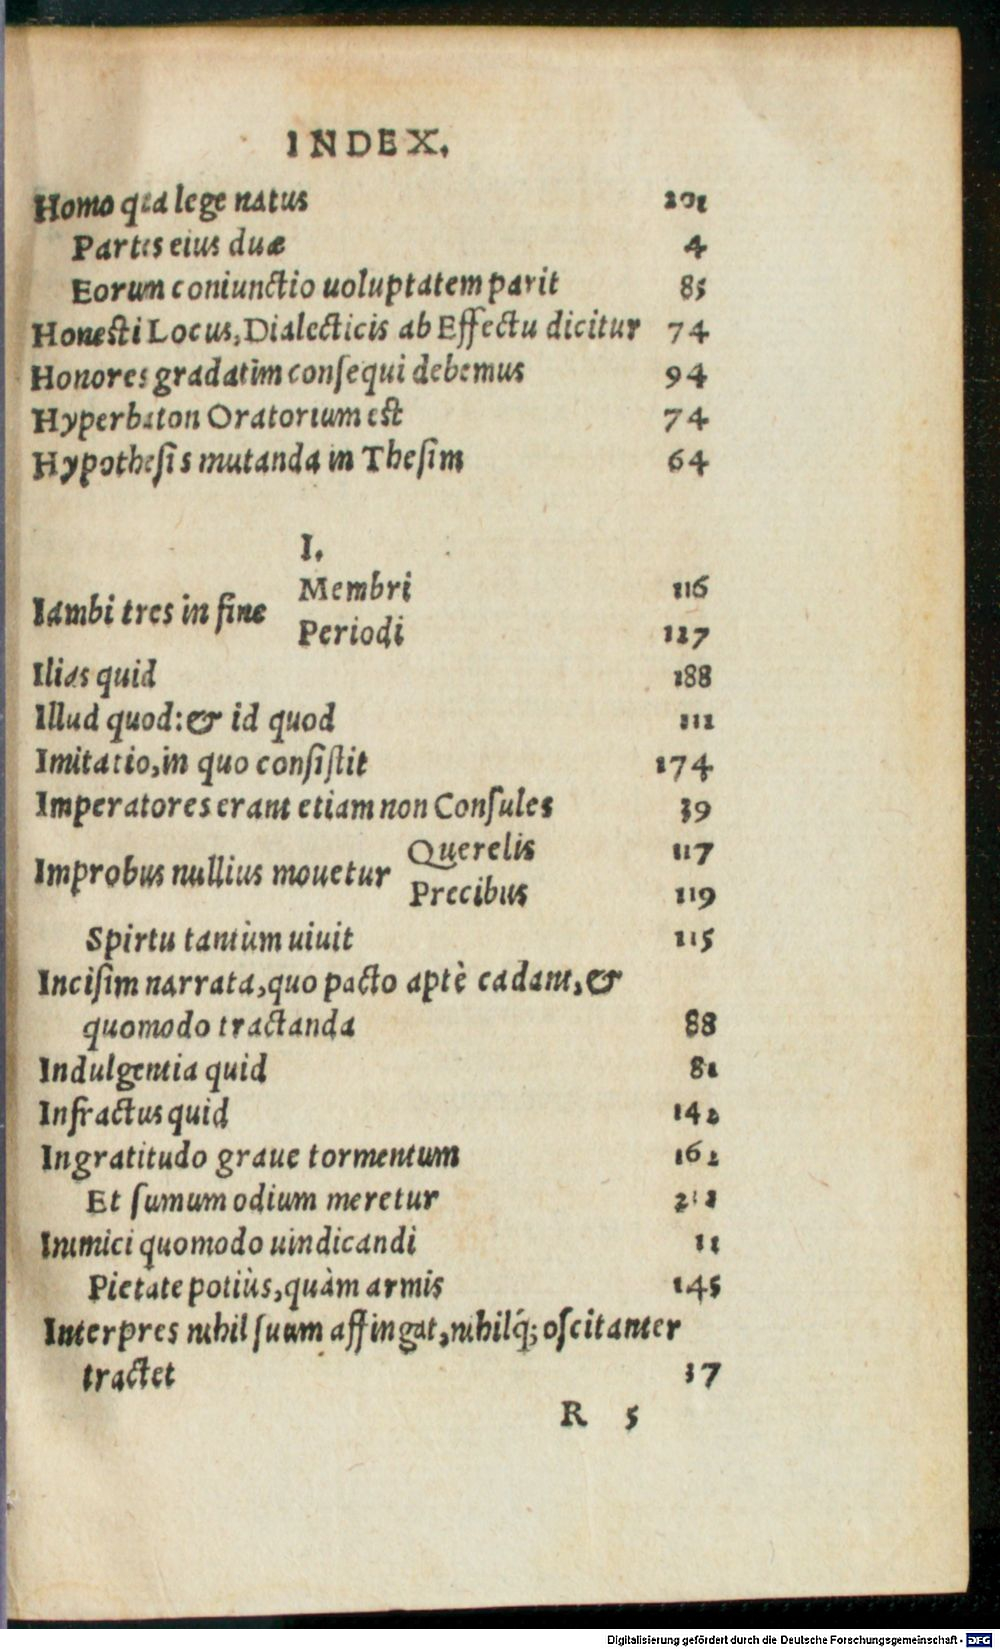 INDEX.
Homo qua lege natus 201
Partes eius duæ 4
Eorum coniunctio uoluptatem parit 85
Honesti Locus, Dialecticis ab Effectu dicitur 74
Honores gradatìm consequi debemus 94
Hyperbaton Oratorium est 74
Hypothesis mutanda in Thesim 64
I.
Iambi tres in fine Membri 116
Periodi 127
Ilias quid 188
Illud quod: & id quod 111
Imitatio, in quo consistit 174
Imperatores erant etiam non Consules 39
Improbus nullius mouetur Querelis 117
Precibus 119
Spirtu tantùm uiuit 115
Incisim narrata, quo pacto aptè cadant, &
quomodo tractanda 88
Indulgentia quid 81
Infractus quid 142
Ingratitudo graue tormentum 162
Et sumum odium meretur
Inimici quomodo uindicandi 11
Pietate potiùs, quàm armis 145
Interpres nihil suum affingat, nihilq́; oscitanter
tractet 37
R 5
Digitalisierung gefördert durch die Deutsche Forschungsgemeinschaft - DFG